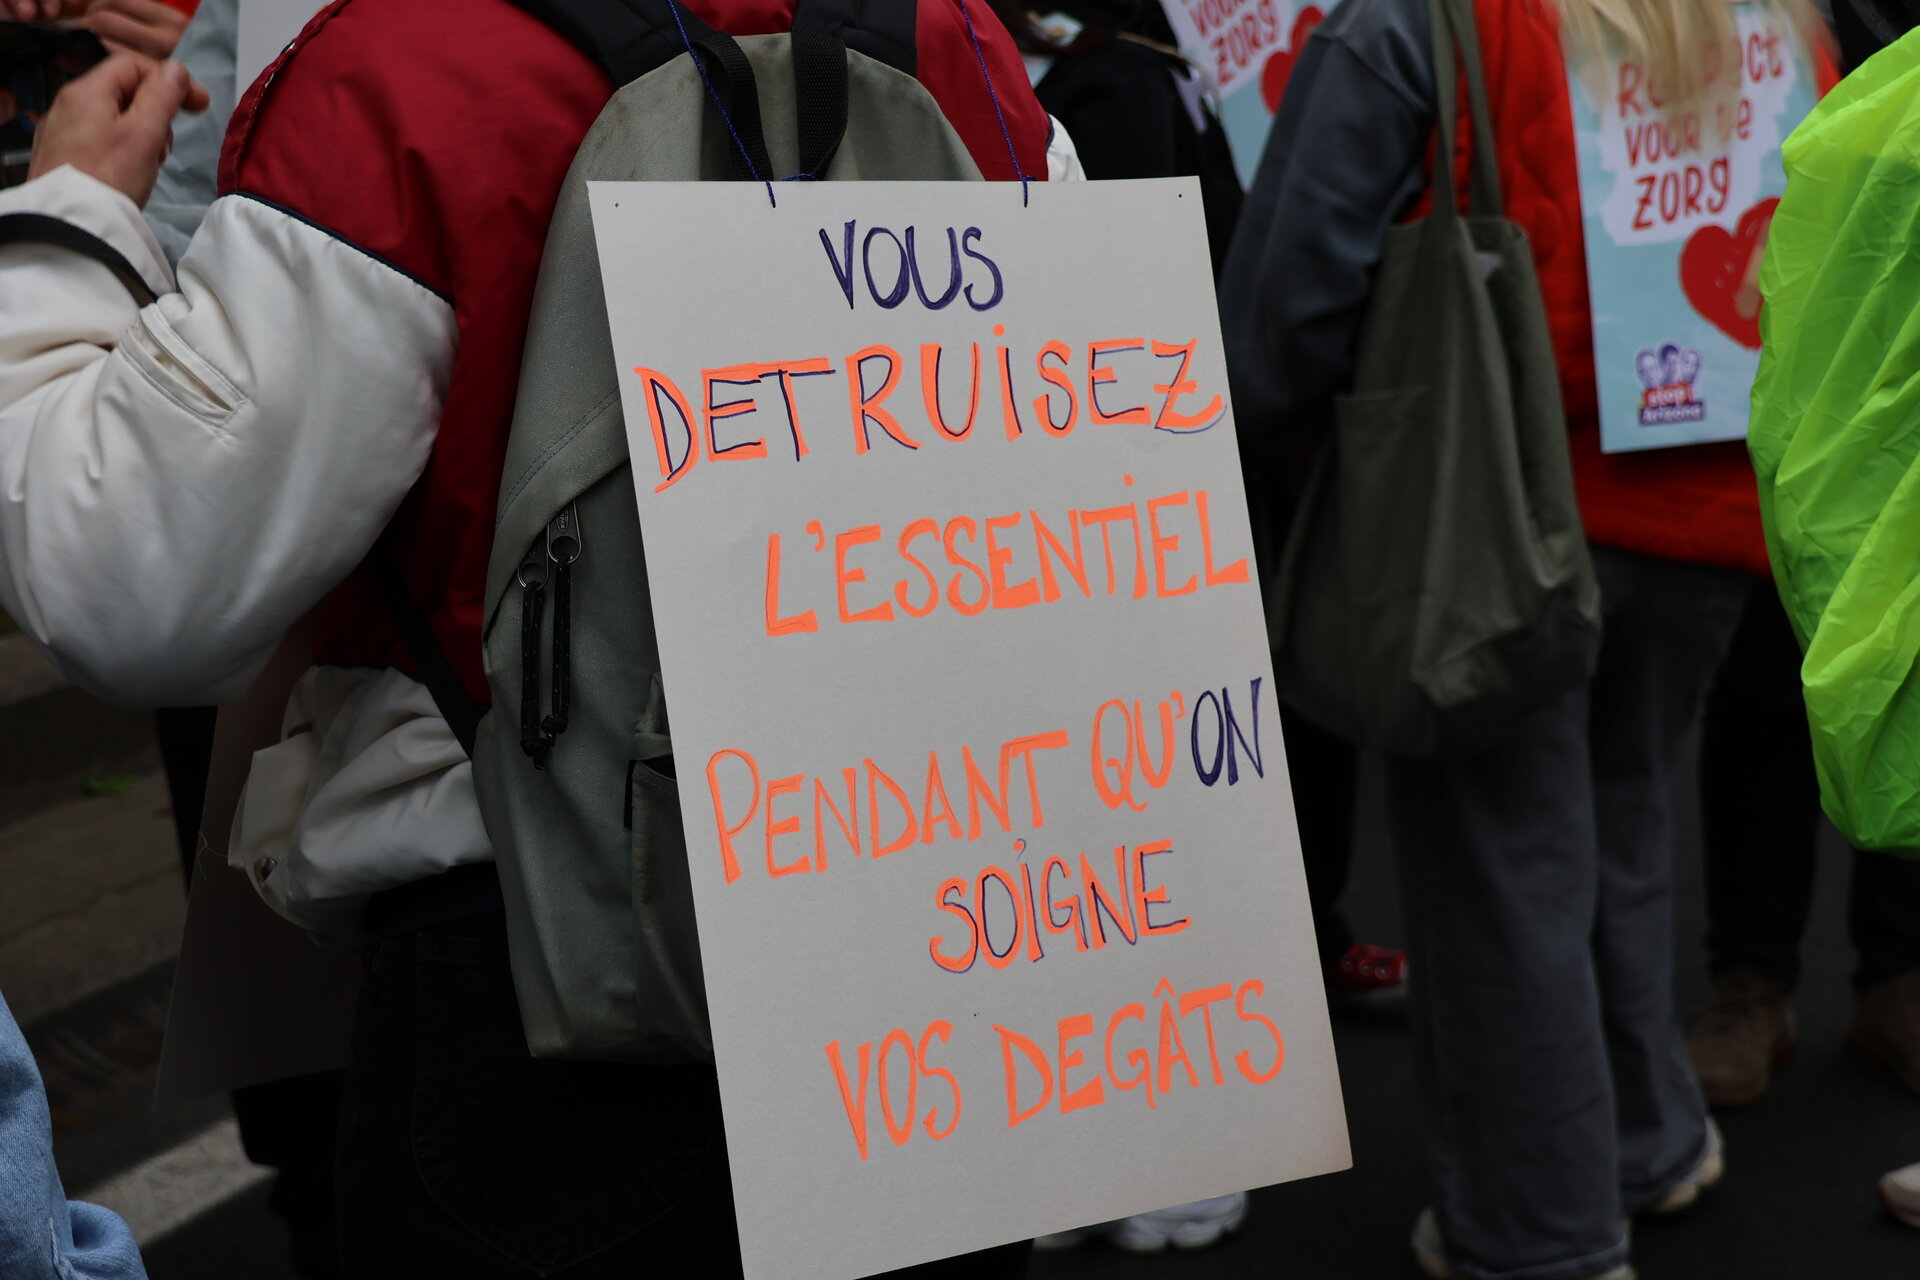 VOUS
DETRUISEZ
L'ESSENTIEL
PENDANT QU'ON
SOIGNE
VOS DEGÂTS
ZORG
Respect
VOOR De
ZORg
stop
Arizona